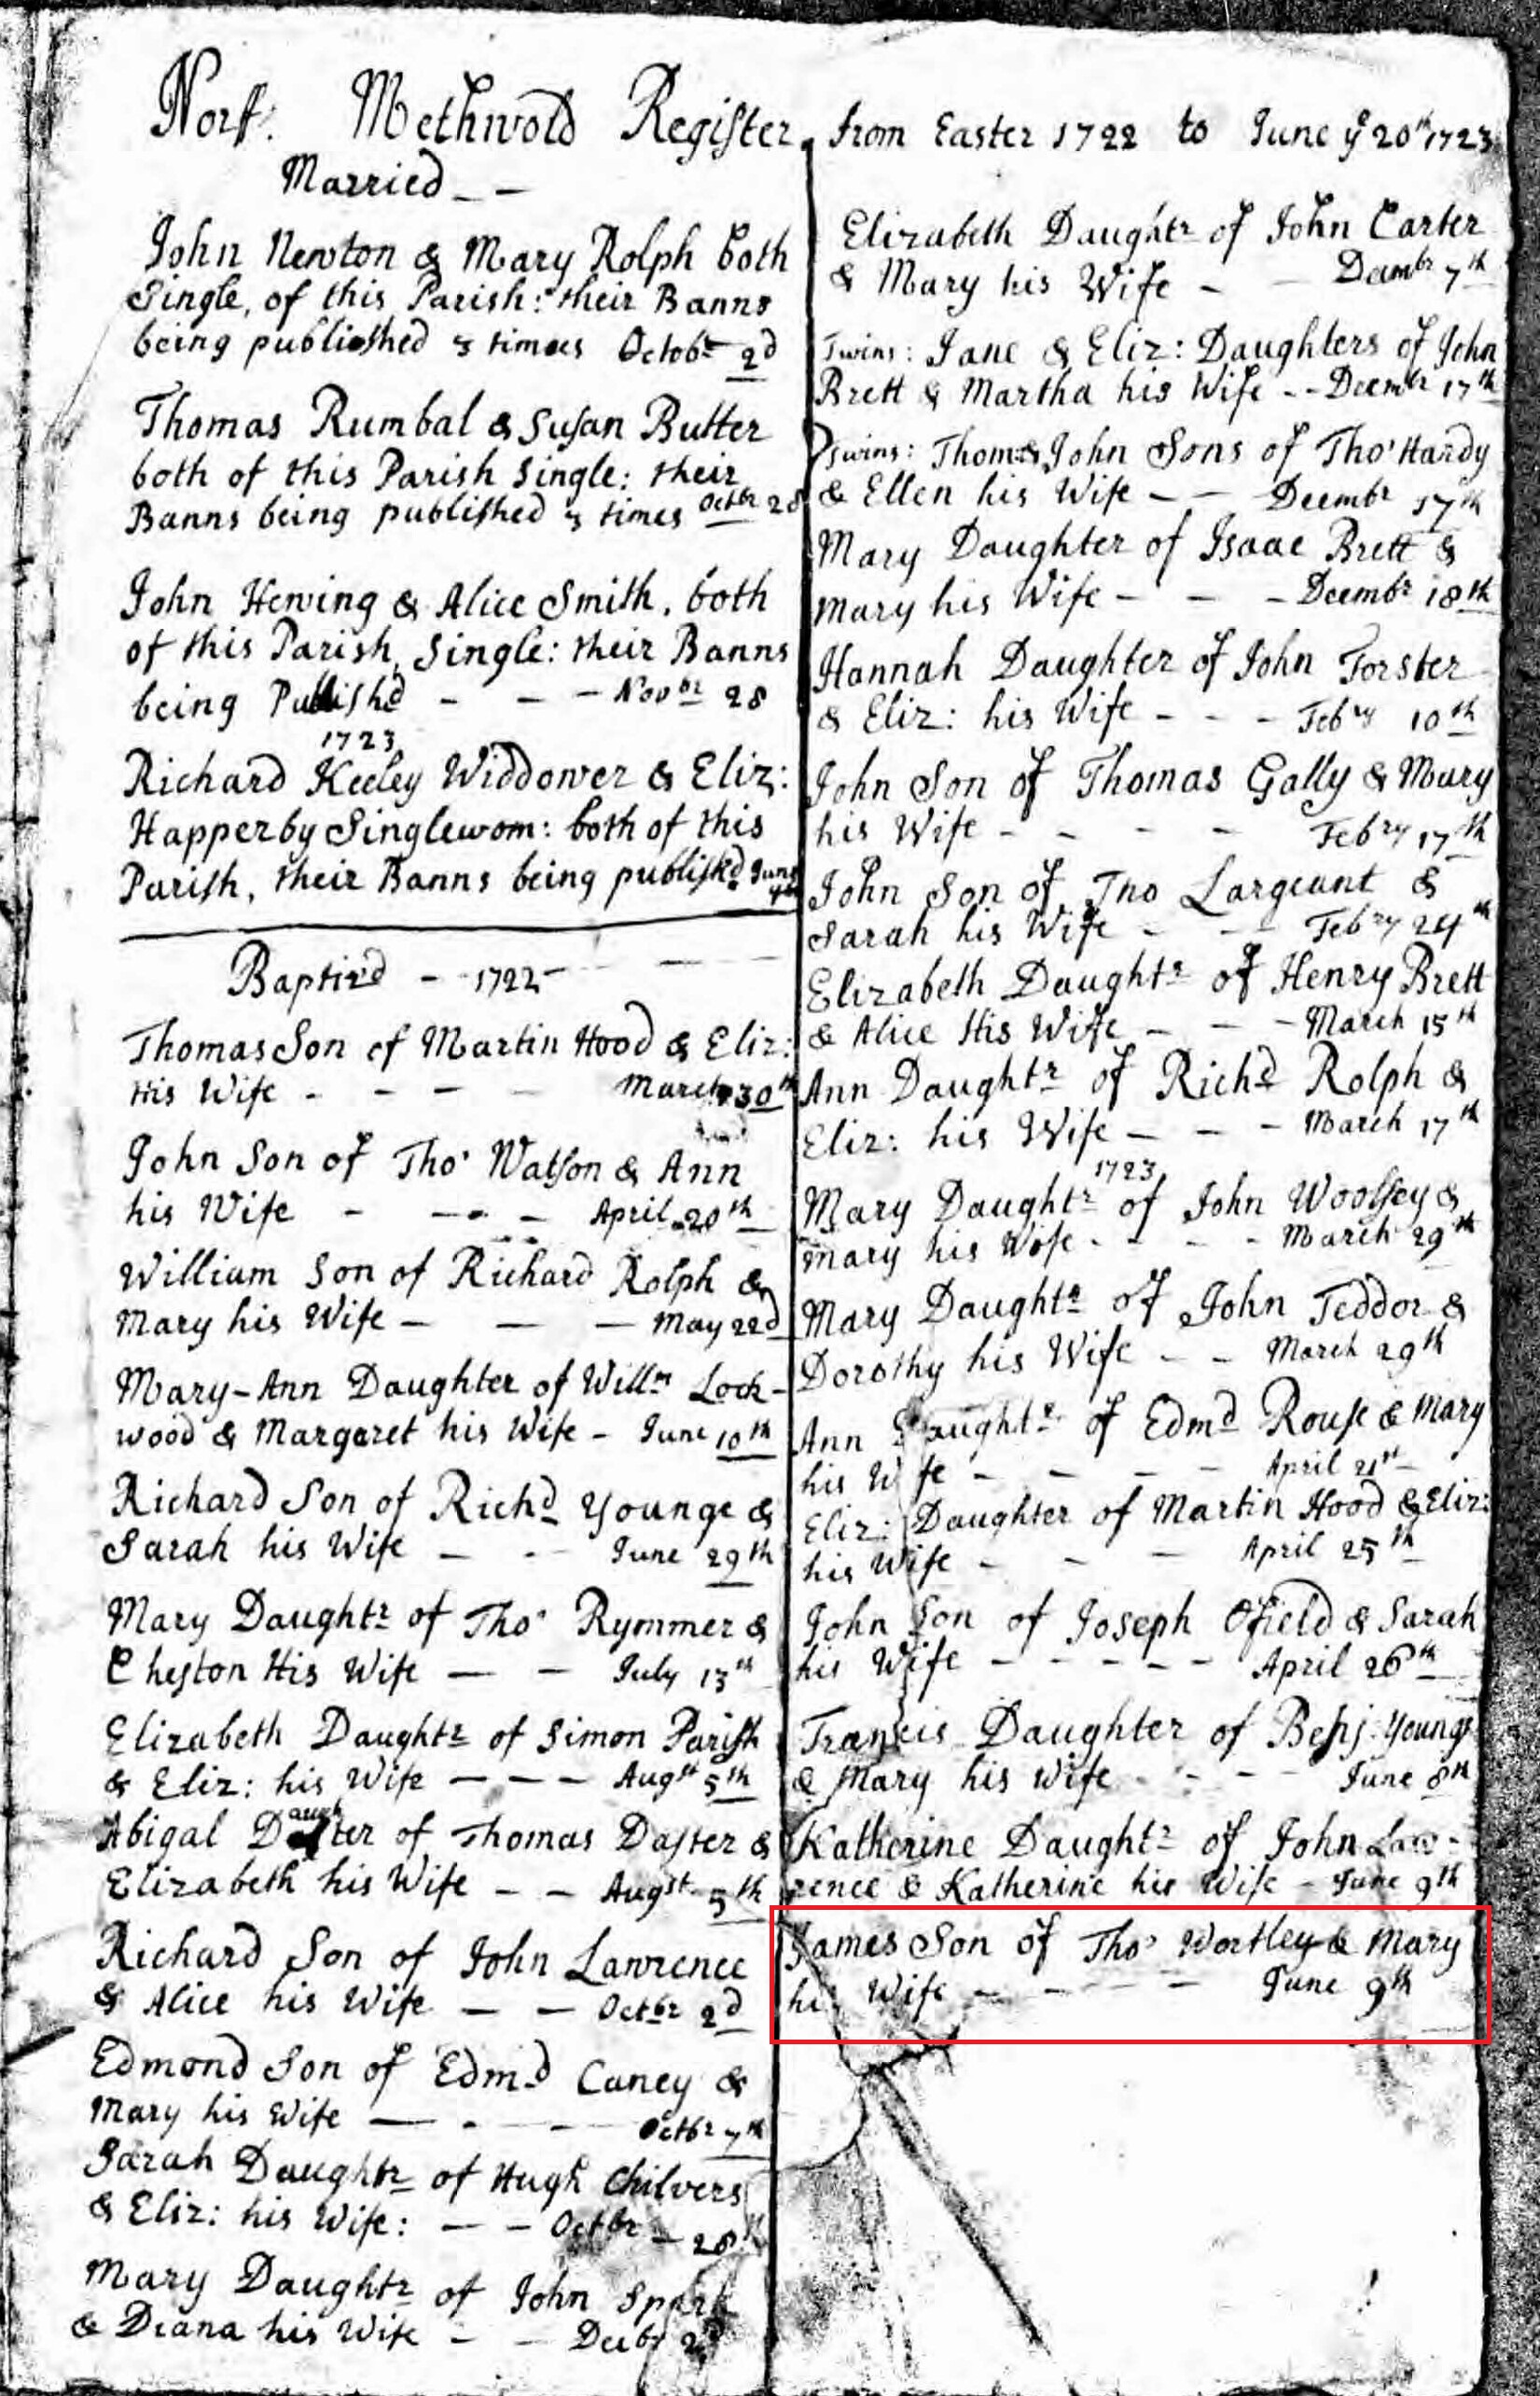 Norf: Methwold Register from Easter 1722 to June ye 20th 1723
Married
John Newton & Mary Rolph both
Single, of this Parish: their Banns
being published 3 times Octobr 2d
Thomas Rumbal & Susan Butter
both of this Parish Single: their
Banns being published 3 times Octbr 28
John Hewing & Alice Smith, both
of this Parish, Single: their Banns
being Publishd - - - Novbr 28
1723
Richard Keeley Widdower & Eliz:
Happerby Singlewom: both of this
Parish, their Banns being publishd June
Baptizd - 1722
Thomas Son of Martin Hood & Eliz:
His Wife - - - - March 30th
John Son of Tho Watson & Ann
his Wife - - - - April 20th
William Son of Richard Rolph &
Mary his Wife - - - May 22d
Mary-Ann Daughter of Willm Lock-
wood & Margaret his Wife - June 10th
Richard Son of Richd Younge &
Sarah his Wife - - - June 29th
Mary Daughtr of Tho Rymmer &
Cheston His Wife - - July 13th
Elizabeth Daughtr of Simon Parish
& Eliz: his Wife - - - Augst 5th
Abigal Daughter of Thomas Daster &
Elizabeth his Wife - - Augst 5th
Richard Son of John Lawrence
& Alice his Wife - - Octbr 2d
Edmond Son of Edmd Caney &
Mary his Wife - - - Octbr 7th
Sarah Daughtr of Hugh Chilvers
& Eliz: his Wife: - - Octbr 28
Mary Daughtr of John Spark
& Diana his Wife - -
Elizabeth Daughtr of John Carter
& Mary his Wife - - Decmbr 7th
Twins: Jane & Eliz: Daughters of John
Brett & Martha his Wife - - Decmbr 17th
Twins: Thom & John Sons of Tho Hardy
& Ellen his Wife - - Decmbr 17th
Mary Daughter of Isaac Brett &
Mary his Wife - - - Decmbr 18th
Hannah Daughter of John Forster
& Eliz: his Wife - - - Febry 10th
John Son of Thomas Gally & Mary
his Wife - - - - Febry 17th
John Son of Tho Largeant &
Sarah his Wife - - - Febry 24th
Elizabeth Daughtr of Henry Brett
& Alice His Wife - - - March 15th
Ann Daughtr of Richd Rolph &
Eliz: his Wife - - - March 17th
1723
Mary Daughtr of John Woolsey &
Mary his Wife - - - - March 29th
Mary Daughtr of John Teddor &
Dorothy his Wife - - March 29th
Ann Daughtr of Edmd Rouse & Mary
his Wife - - - - April 21st
Eliz: Daughter of Martin Hood & Eliz:
his Wife - - - April 25th
John Son of Joseph Ofield & Sarah
his Wife - - - - - April 26th
Francis Daughter of Benj: Younge
& Mary his Wife - - - June 8th
Katherine Daughtr of John Law-
rence & Katherine his Wife - June 9th
James Son of Tho Wortley & Mary
his Wife - - - - June 9th